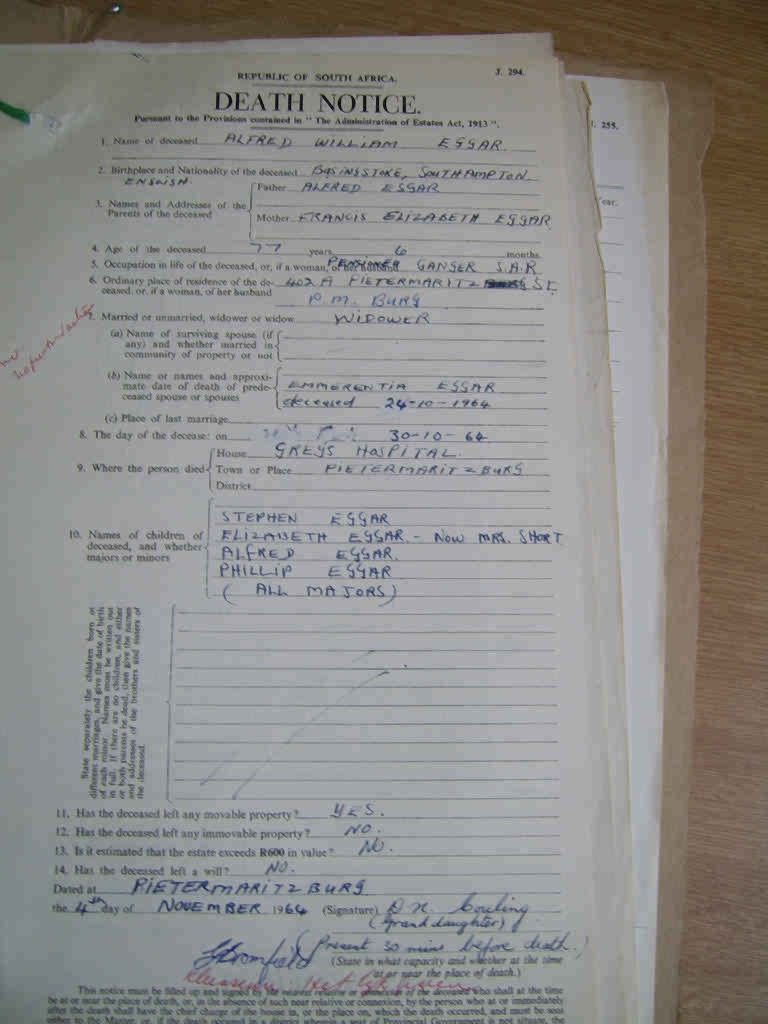 REPUBLIC OF SOUTH AFRICA.
J. 294.
DEATH NOTICE.
Pursuant to the Provisions contained in "The Administration of Estates Act, 1913".
1. Name of deceased ALFRED WILLIAM EGGAR.
2. Birthplace and Nationality of the deceased BASINGSTOKE, SOUTHAMPTON
ENGLISH.
3. Names and Addresses of the Parents of the deceased
Father ALFRED EGGAR
Mother FRANCIS ELIZABETH EGGAR
4. Age of the deceased 77 years 6 months.
5. Occupation in life of the deceased, or, if a woman, of her husband PENSIONER GANGER S.A.R
6. Ordinary place of residence of the de- 402 A PIETERMARITZ ST.
ceased, or, if a woman, of her husband P.M. BURG
7. Married or unmarried, widower or widow WIDOWER
(a) Name of surviving spouse (if
any) and whether married in
community of property or not
(b) Name or names and approxi-
mate date of death of prede- EMMERENTIA EGGAR
ceased spouse or spouses deceased 24-10-1964
(c) Place of last marriage
8. The day of the decease: on 30-10-64
9. Where the person died
House GREYS HOSPITAL.
Town or Place PIETERMARITZBURG
District
10. Names of children of
deceased, and whether
majors or minors
STEPHEN EGGAR
ELIZABETH EGGAR. - NOW MRS. SHORT
ALFRED EGGAR.
PHILLIP EGGAR
(ALL MAJORS)
State separately the children born of
different marriages, and give the date of birth
of each minor. Names must be written out
in full. If there are no children, and either
or both parents be dead, then give the names
and addresses of the brothers and sisters of
the deceased.
11. Has the deceased left any movable property? YES.
12. Has the deceased left any immovable property? NO.
13. Is it estimated that the estate exceeds R600 in value? NO.
14. Has the deceased left a will? NO.
Dated at PIETERMARITZBURG
the 4th day of NOVEMBER 1964 (Signature)
(Grand daughter)
(Present 30 mins before death.)
(State in what capacity and whether at the time
or near the place of death.)
This notice must be filled up and signed by the nearest relative or connection of the deceased who shall at the time
be at or near the place of death, or, in the absence of such near relative or connection, by the person who at or immediately
after the death shall have the chief charge of the house in, or the place on, which the death occurred, and must be sent
either to the Master, or, if the death occurred in a district wherein a seat of Provincial Government is not situate, the
J. 255.